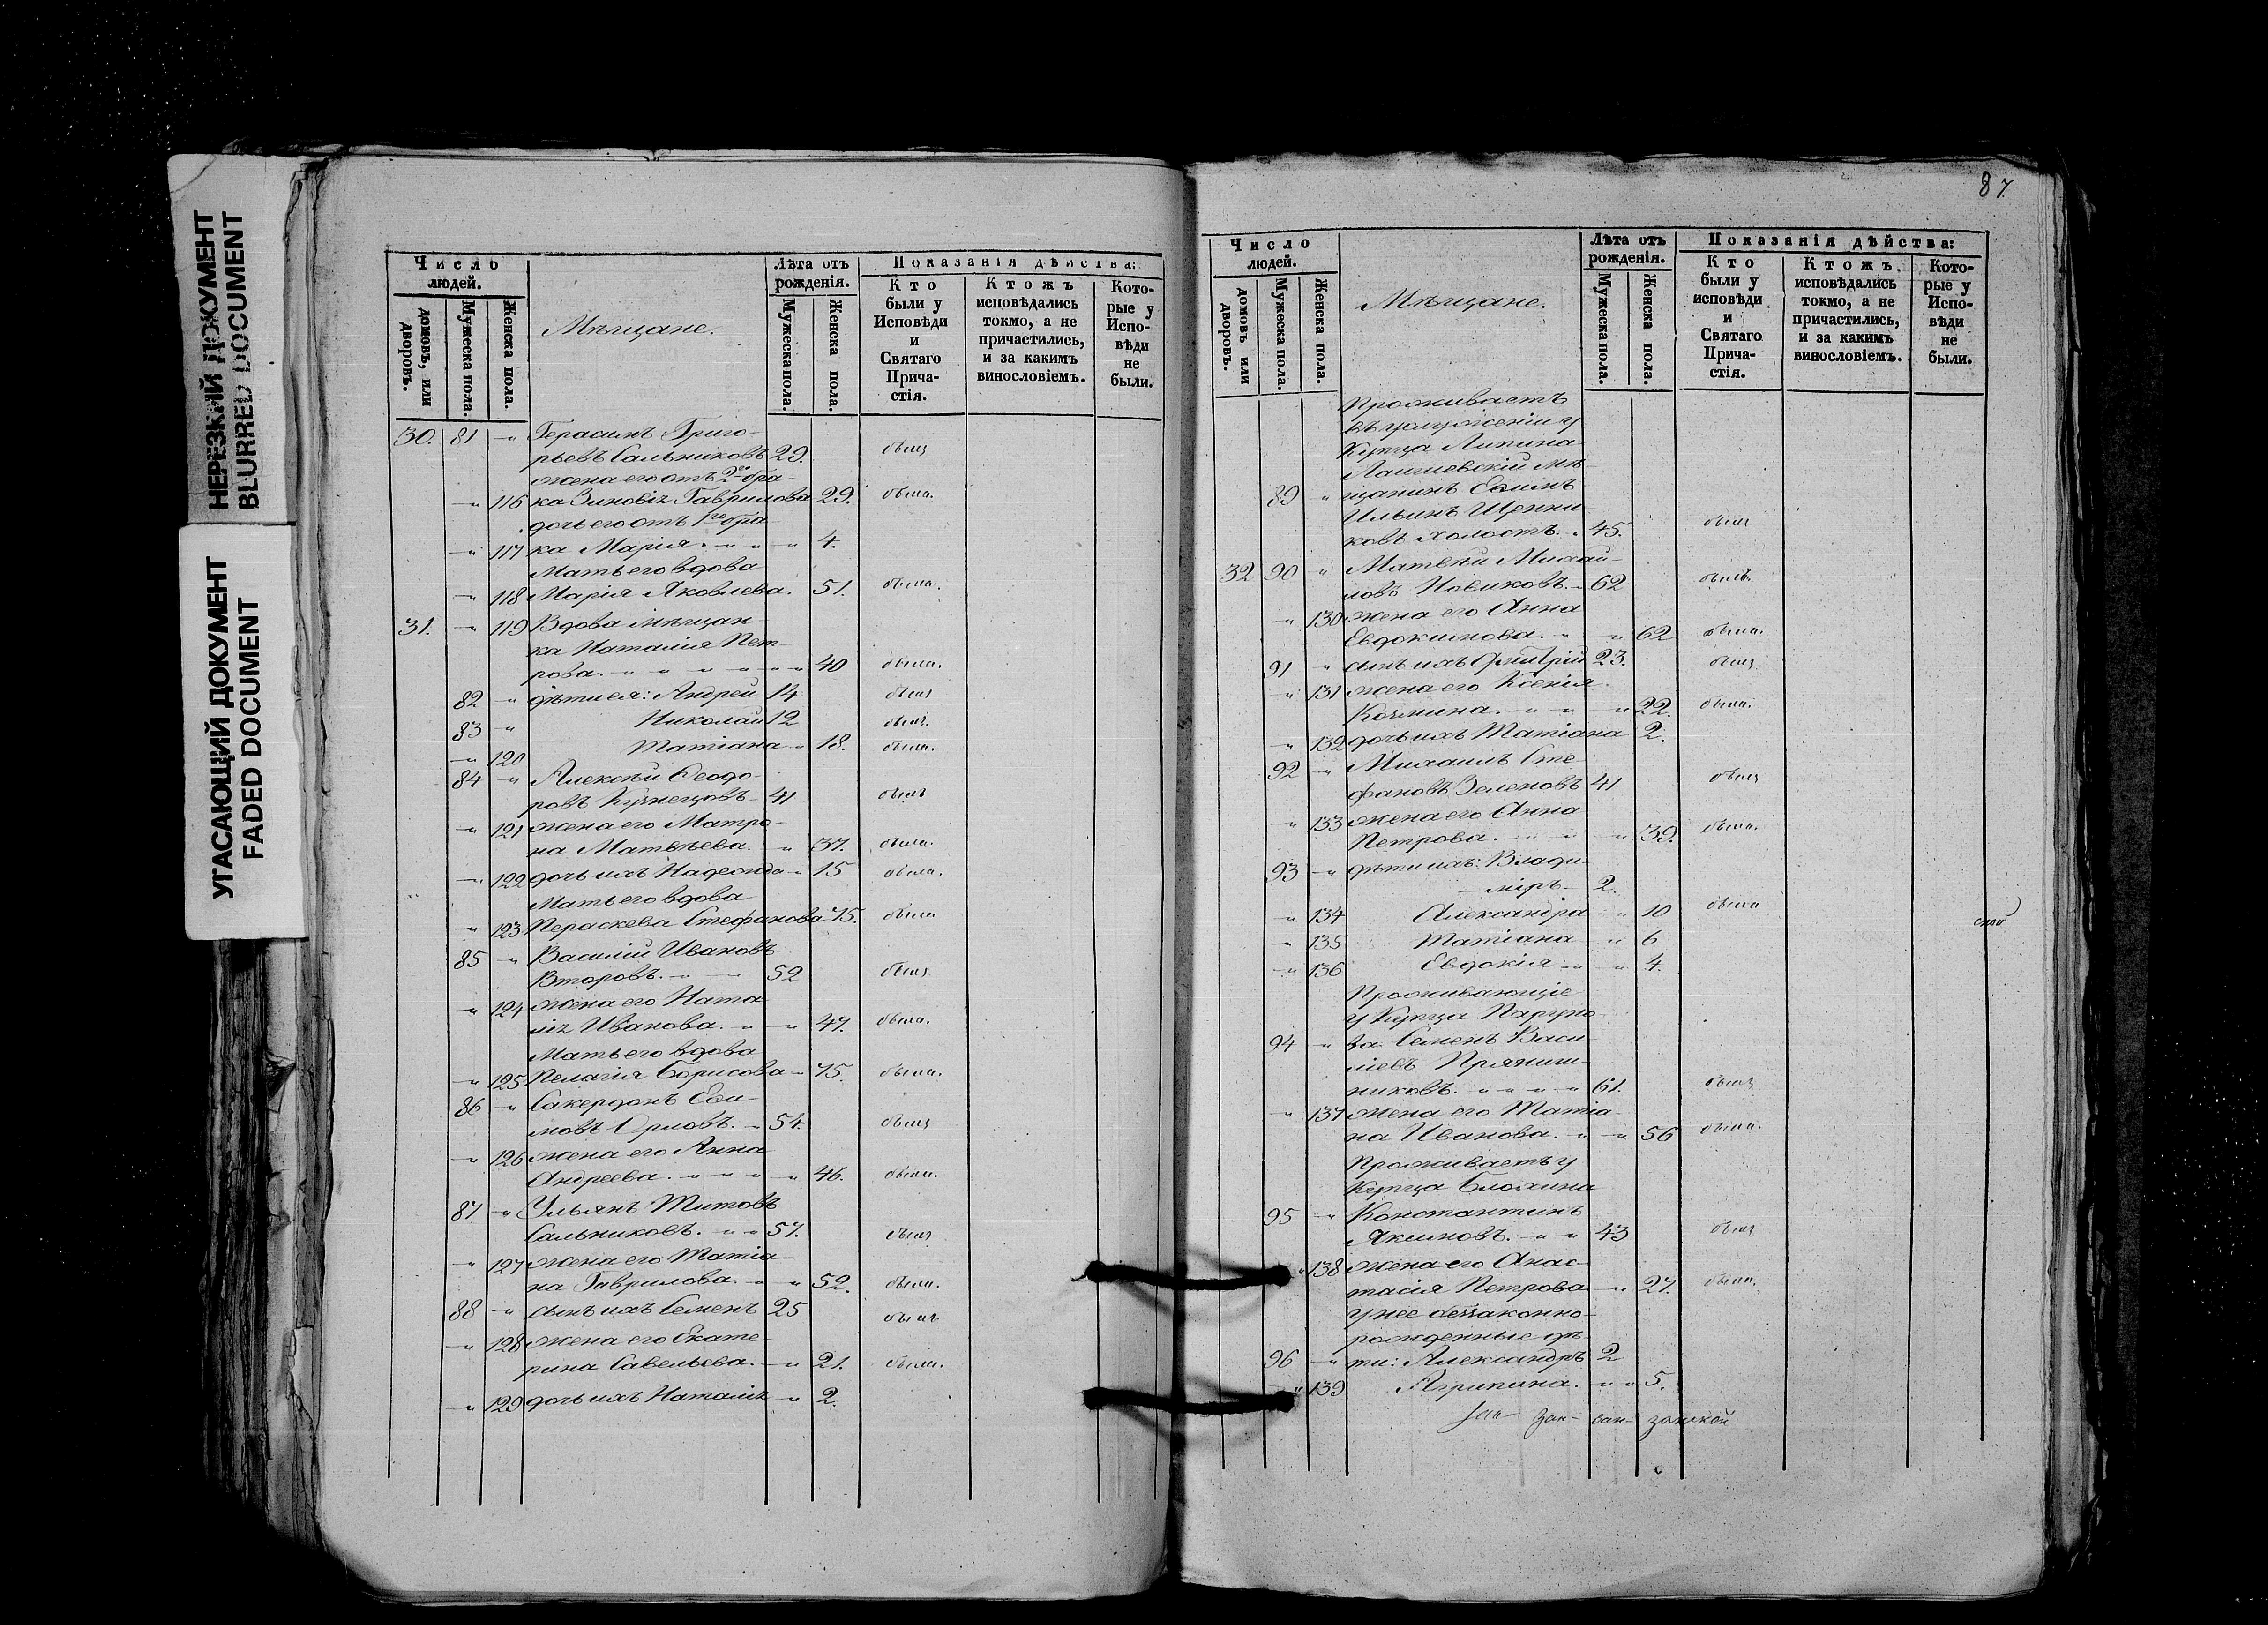 НЕРЕЗКИЙ ДОКУМЕНТ
BLURRED DOCUMENT
УГАСАЮЩИЙ ДОКУМЕНТ
FADED DOCUMENT
Число людей.
домовъ, или дворовъ.
Мужеска пола.
Женска пола.
Мѣщане.
Лѣта отъ рожденія.
Мужеска пола.
Женска пола.
Показанія дѣйства:
Кто были у Исповѣди и Святаго Причастія.
Ктожъ исповѣдались токмо, а не причастились, и за какимъ винословіемъ.
Которые у Исповѣди не были.
30. 81 " Герасимъ Григо-
рьевъ Сальниковъ 29. былъ
жена его отъ 2го бра-
" 116 ка Зиновія Гаврилова 29. была.
дочь его отъ 1го бра-
" 117 ка Марія. " " " 4.
Мать его вдова
" 118 Марія Яковлева. 51. была.
31. " 119 Вдова мѣщан-
ка Наталія Пет-
рова. " " " " " " 40 была.
82 " дѣти ея: Андрей 14 былъ
83 " Николай 12 былъ.
" 120 Татіана " 18. была.
84 " Алексѣй Ѳеодо-
ровъ Кузнецовъ 41 былъ
" 121 жена его Матро-
на Матвѣева. " 37. была.
" 122 дочь ихъ Надежда " 15 была.
Мать его вдова
" 123 Параскева Стефанова 75. была
85 " Василій Ивановъ
Второвъ. " " 52 былъ
" 124 жена его Ната
лія Иванова. " " 47. была.
Мать его вдова
" 125 Пелагія Борисова " 75. была.
86 " Сакердонъ Ефи-
мовъ Орловъ. " 54. былъ
" 126 жена его Анна
Андреева. " " " " 46. была.
87 " Ульянъ Титовъ
Сальниковъ. " " 57. былъ
" 127 жена его Татіа-
на Гаврилова. " " 52. была.
88 " сынъ ихъ Семенъ 25 былъ
" 128 жена его Екате-
рина Савельева. " " 21. была.
" 129 дочь ихъ Наталія " 2.
87.
Число людей.
домовъ или дворовъ.
Мужеска пола.
Женска пола.
Мѣщане.
Лѣта отъ рожденія.
Мужеска пола.
Женска пола.
Показанія дѣйства:
Кто были у исповѣди и Святаго Причастія.
Ктожъ исповѣдались токмо, а не причастились, и за какимъ винословіемъ.
Которые у Исповѣди не были.
Проживаетъ
въ услуженіи у
Купца Липина
Лаишевскій мѣ-
89 " щанинъ Ефимъ
Ильинъ Щенни-
ковъ холостъ. " 45. былъ
32 90 " Матвѣй Михай-
ловъ Новиковъ. " 62 былъ.
" 130 жена его Анна
Евдокимова. " " 62 была.
91 " сынъ ихъ Дмитрій 23. былъ
" 131 жена его Ксенія
Козмина. " " " 22. была.
" 132 дочь ихъ Татіана 2.
92 " Михаилъ Сте-
фановъ Зеленовъ 41 былъ
" 133 жена его Анна
Петрова. " " " 39. была.
93 " дѣти ихъ: Влади-
міръ 2.
" 134 Александра " 10 была
" 135 Татіана " 6
" 136 Евдокія " " 4.
Проживающіе
у Купца Паруно-
94 " ва Семенъ Васи-
льевъ Пряниш-
никовъ. " " " " 61. былъ
" 137 жена его Татіа-
на Иванова. " " 56 была.
Проживаетъ у
Купца Блохина
95 " Константинъ
Якимовъ. " " 43 былъ
" 138 жена его Анас-
тасія Петрова " 27. была.
у нее беззаконно-
рожденные дѣ-
96 " ти: Александръ 2
" 139 Агрипина. " " 5.